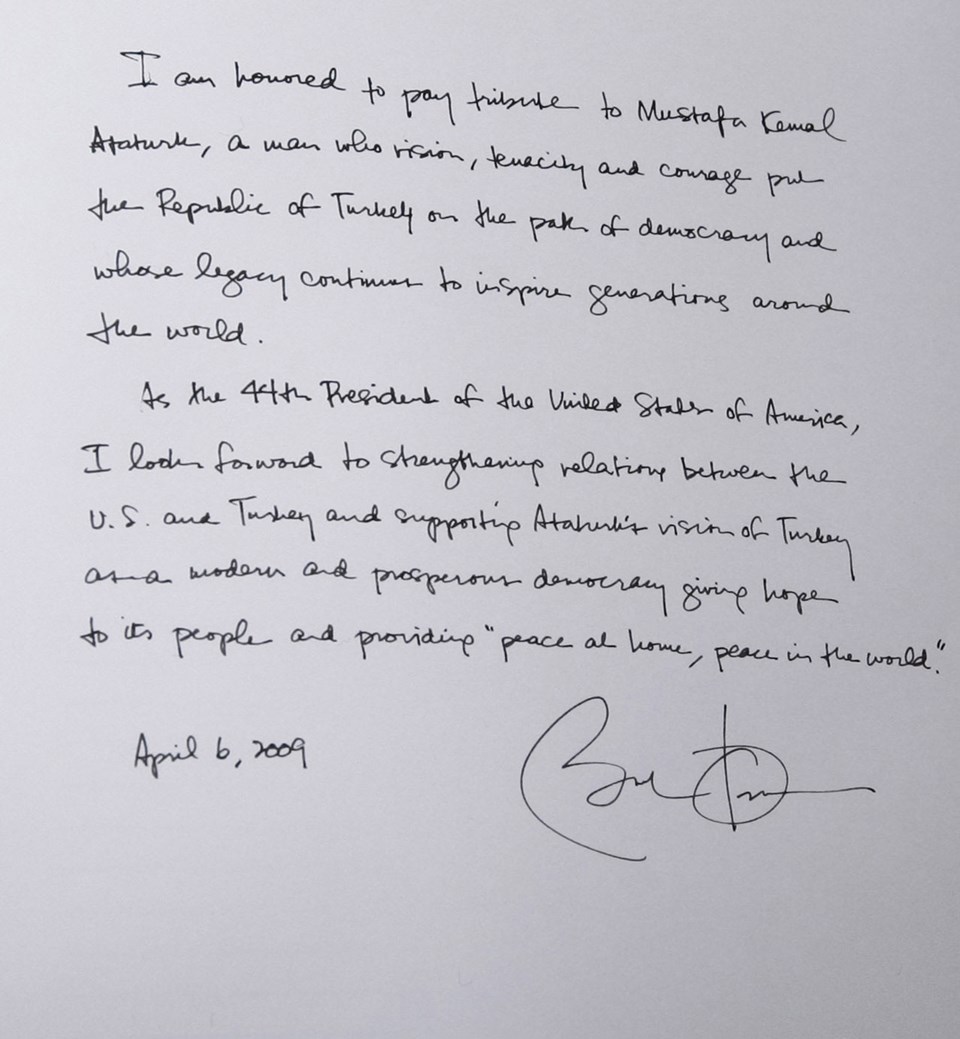 I am honored to pay tribute to Mustafa Kemal
Ataturk, a man who vision, tenacity and courage put
the Republic of Turkey on the path of democracy and
whose legacy continues to inspire generations around
the world.
As the 44th President of the United States of America,
I look forward to strengthening relations between the
U.S. and Turkey and supporting Ataturk's vision of Turkey
as a modern and prosperous democracy giving hope
to its people and providing "peace at home, peace in the world".
April 6, 2009